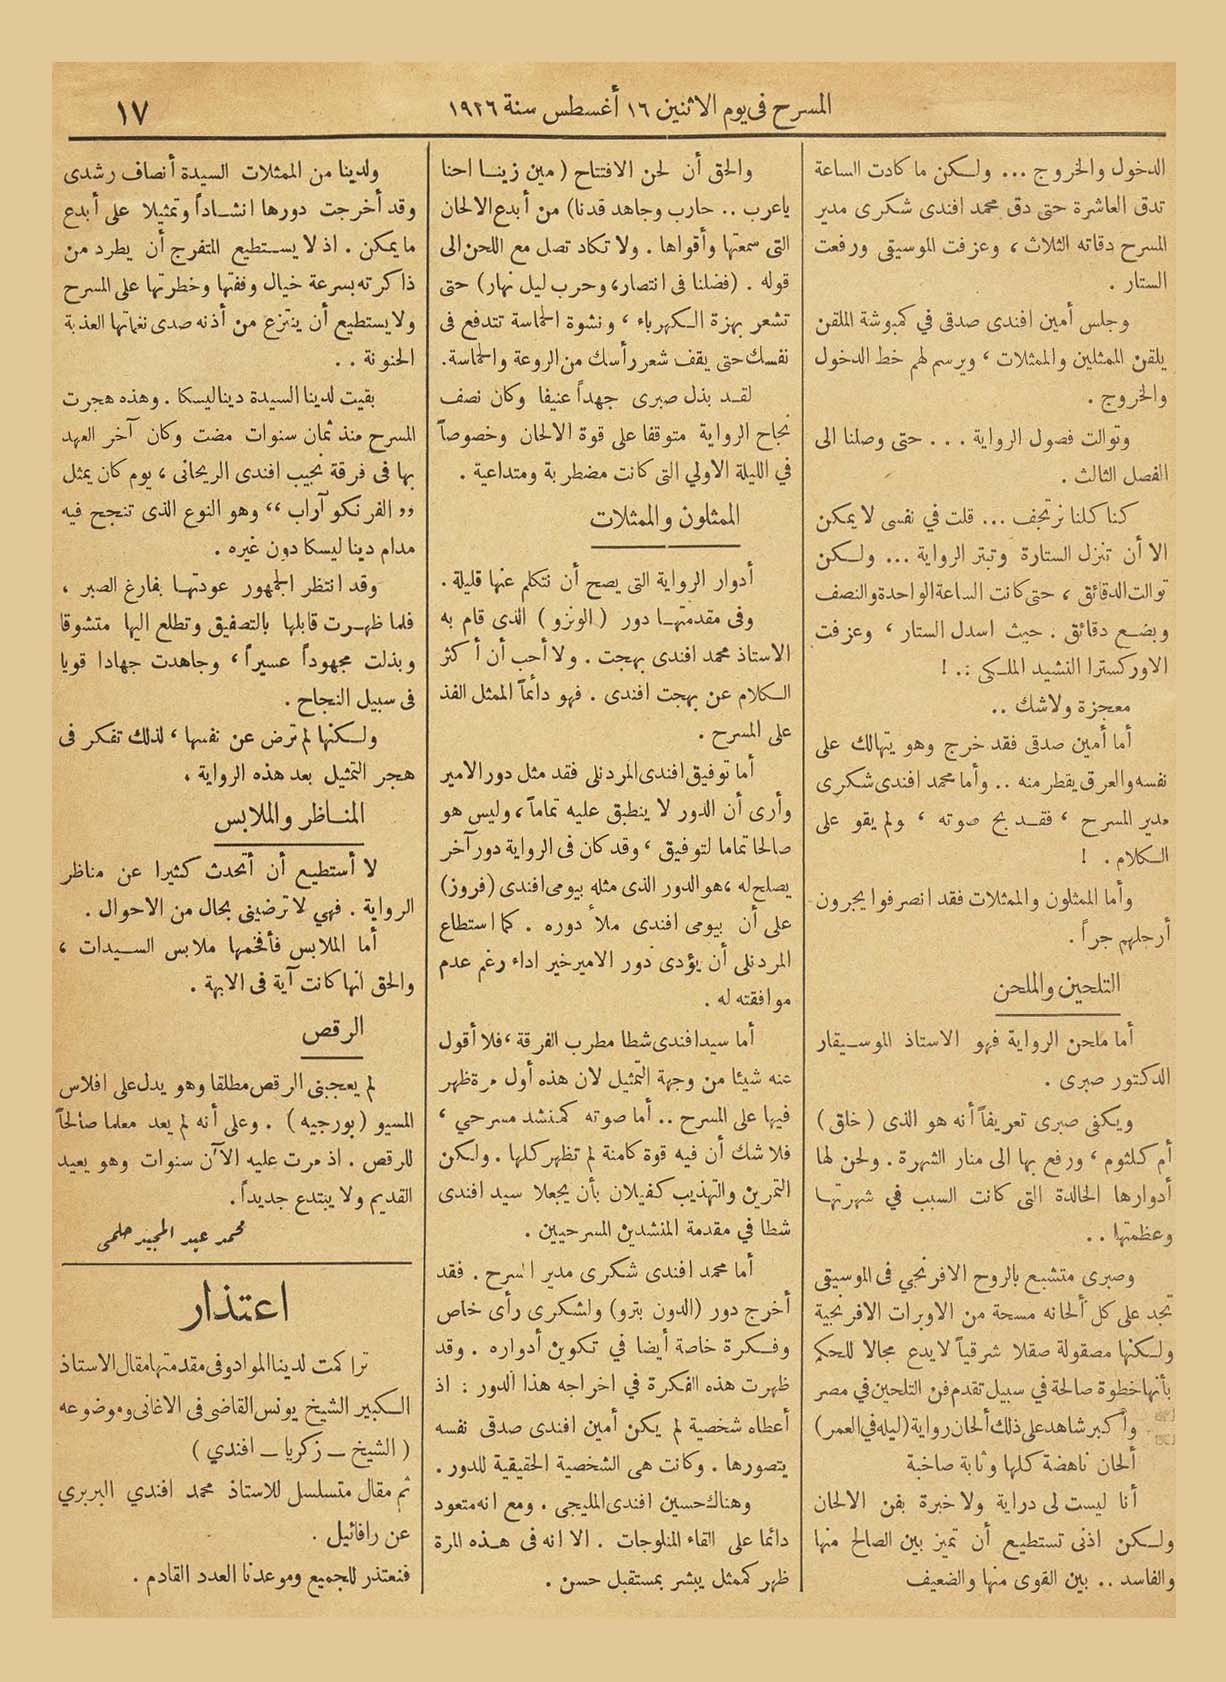 المسرح في يوم الاثنين ١٦ أغسطس سنة ١٩٢٦
١٧
الدخول والخروج ... ولكن ما كادت الساعة
تدق العاشرة حتى دق محمد افندى شكرى مدير
المسرح دقاته الثلاث ، وعزفت الموسيقى ورفعت
الستار .
وجلس أمين افندى صدقى في كمبوشة الملقن
يلقن الممثلين والممثلات ، ويرسم لهم خط الدخول
والخروج .
وتوالت فصول الرواية ... حتى وصلنا الى
الفصل الثالث .
كنا كلنا نرتجف ... قلت في نفسى لا يمكن
الا أن تنزل الستارة وتبتر الرواية ... ولكن
توالت الدقائق ، حتى كانت الساعة الواحدة والنصف
وبضع دقائق . حيث اسدل الستار ، وعزفت
الاوركسترا النشيد الملكى .. !
معجزة ولاشك ..
أما أمين صدقى فقد خرج وهو يتهالك على
نفسه والعرق يقطر منه .. وأما محمد افندى شكرى
مدير المسرح ، فقد بح صوته ، ولم يقو على
الكلام . !
وأما الممثلون والممثلات فقد انصرفوا يجرون
أرجلهم جراً .
التلحين والملحن
أما ملحن الرواية فهو الاستاذ الموسيقار
الدكتور صبرى .
ويكفى صبرى تعريفاً أنه هو الذى (خلق)
أم كلثوم ، ورفع بها الى منار الشهرة . ولحن لها
أدوارها الخالدة التى كانت السبب في شهرتها
وعظمتها ..
وصبرى متشبع بالروح الافرنجي فى الموسيقى
تجد على كل ألحانه مسحة من الاوبرات الافرنجية
ولكنها مصقولة صقلا شرقياً لا يدع مجالا للحكم
بأنها خطوة صالحة في سبيل تقدم فن التلحين في مصر
وأكبر شاهد على ذلك ألحان رواية (ليله في العمر)
ألحان ناهضة كلها وثابة صاخبة
أنا ليست لى دراية ولا خبرة بفن الالحان
ولكن اذنى تستطيع أن تميز بين الصالح منها
والفاسد .. بين القوى منها والضعيف
والحق أن لحن الافتتاح (مين زينا احنا
ياعرب .. حارب وجاهد قدنا) من أبدع الالحان
التى سمعتها وأقواها . ولا تكاد تصل مع اللحن الى
قوله . (فضلنا فى انتصار، وحرب ليل نهار) حتى
تشعر بهزة الكهرباء ، ونشوة الحماسة تتدفع فى
نفسك حتى يقف شعر رأسك من الروعة والحماسة.
لقد بذل صبرى جهداً عنيفا وكان نصف
نجاح الرواية متوقفا على قوة الالحان وخصوصاً
في الليلة الاولي التى كانت مضطربة ومتداعية .
الممثلون والممثلات
أدوار الرواية التى يصح أن نتكلم عنها قليلة .
وفى مقدمتها دور (الونزو) الذى قام به
الاستاذ محمد افندى بهجت . ولا أحب أن أكثر
الكلام عن بهجت افندى . فهو دائماً الممثل الفذ
على المسرح .
أما توفيق افندى المردنلى فقد مثل دور الامير
وأرى أن الدور لا ينطبق عليه تماماً ، وليس هو
صالحا تماما لتوفيق ، وقد كان فى الرواية دور آخر
يصلح له ، هو الدور الذى مثله بيومى افندى (فروز)
على أن بيومى افندى ملأ دوره . كما استطاع
المردنلى أن يؤدى دور الامير خير اداء رغم عدم
موافقته له .
أما سيد افندى شطا مطرب الفرقة ، فلا أقول
عنه شيئا من وجهة التمثيل لان هذه أول مرة ظهر
فيها على المسرح .. أما صوته كمنشد مسرحي ،
فلا شك أن فيه قوة كامنة لم تظهر كلها . ولكن
التمرين والتهذيب كفيلان بأن يجعلا سيد افندى
شطا في مقدمة المنشدين المسرحيين .
أما محمد افندى شكرى مدير المسرح . فقد
أخرج دور (الدون بترو) ولشكرى رأى خاص
وفكرة خاصة أيضا في تكوين أدواره . وقد
ظهرت هذه الفكرة في اخراجه هذا الدور : اذ
أعطاه شخصية لم يكن أمين افندى صدقى نفسه
يتصورها . وكانت هى الشخصية الحقيقية للدور .
وهناك حسين افندى المليجى . ومع انه متعود
دائما على القاء المنلوجات . الا انه فى هذه المرة
ظهر كممثل يبشر بمستقبل حسن .
ولدينا من الممثلات السيدة أنصاف رشدى
وقد أخرجت دورها انشاداً وتمثيلا على أبدع
ما يمكن . اذ لا يستطيع المتفرج أن يطرد من
ذاكرته بسرعة خيال وقفتها وخطرتها على المسرح
ولا يستطيع أن ينتزع من أذنه صدى نغماتها العذبة
الحنونة ..
بقيت لدينا السيدة دينا ليسكا . وهذه هجرت
المسرح منذ ثمان سنوات مضت وكان آخر العهد
بها فى فرقة نجيب افندى الريحانى ، يوم كان يمثل
«الفرنكو آراب» وهو النوع الذى تنجح فيه
مدام دينا ليسكا دون غيره .
وقد انتظر الجمهور عودتها بفارغ الصبر ،
فلما ظهرت قابلها بالتصفيق وتطلع اليها متشوقا
وبذلت مجهوداً عسيراً ، وجاهدت جهادا قويا
فى سبيل النجاح .
ولكنها لم ترض عن نفسها ، لذلك تفكر فى
هجر التمثيل بعد هذه الرواية .
المناظر والملابس
لا أستطيع أن أتحدث كثيرا عن مناظر
الرواية . فهي لا ترضينى بحال من الاحوال .
أما الملابس فأفخمها ملابس السيدات ،
والحق انها كانت آية فى الابهة .
الرقص
لم يعجبنى الرقص مطلقا وهو يدل على افلاس
المسيو (بورجيه) . وعلى أنه لم يعد معلما صالحاً
للرقص . اذ مرت عليه الآن سنوات وهو يعيد
القديم ولا يبتدع جديداً .
محمد عبد المجيد حلمى
اعتذار
تراكمت لدينا المواد وفى مقدمتها مقال الاستاذ
الكبير الشيخ يونس القاضى فى الاغانى وموضوعه
(الشيخ – زكريا – افندي)
ثم مقال متسلسل للاستاذ محمد افندي البربري
عن رافائيل .
فنعتذر للجميع وموعدنا العدد القادم .